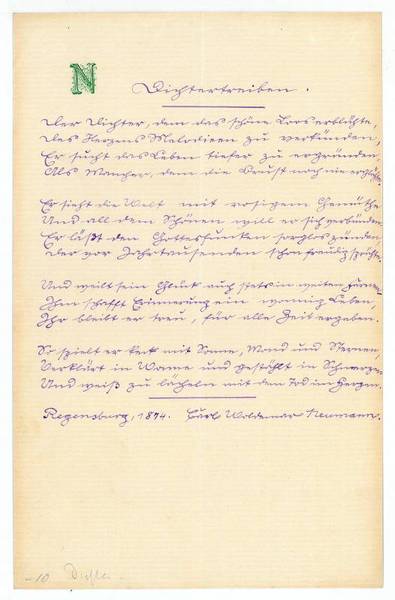 N
Dichtertreiben.
Der Dichter, dem das schöne Loos erblühte,
Des Herzens Melodieen zu verkünden,
Er sucht das Leben tiefer zu ergründen,
Als Mancher, dem die Brust noch nie erglühte.
Er sieht die Welt mit rosigem Gemüthe
Und all dem Schönen will er sich verbünden
Er läßt den Götterfunken sorglos zünden,
Der vor Jahrtausenden schon freudig sprühte.
Und weilt sein Glück auch stets in weiten Fernen
Ihm schafft Erinnerung ein wonnig Leben,
Ihr bleibt er treu, für alle Zeit ergeben.
So spielt er keck mit Sonne, Mond und Sternen,
Verklärt in Wonne und gestählt in Schmerzen
Und weiß zu lächeln mit dem Tod im Herzen.
Regensburg, 1874. Carl Woldemar Neumann.
-10 Dichter